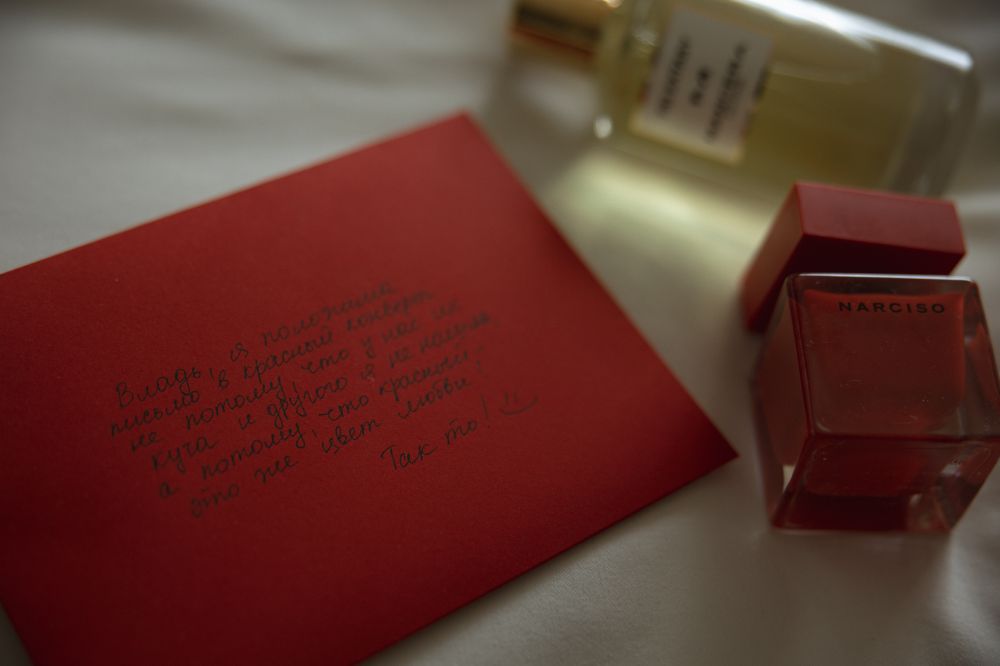 Владь, я положила
письмо в красный конверт
не потому, что у нас их
куча и другого я не нашла,
а потому, что красный -
это же цвет любви!
Так то!
NARCISO